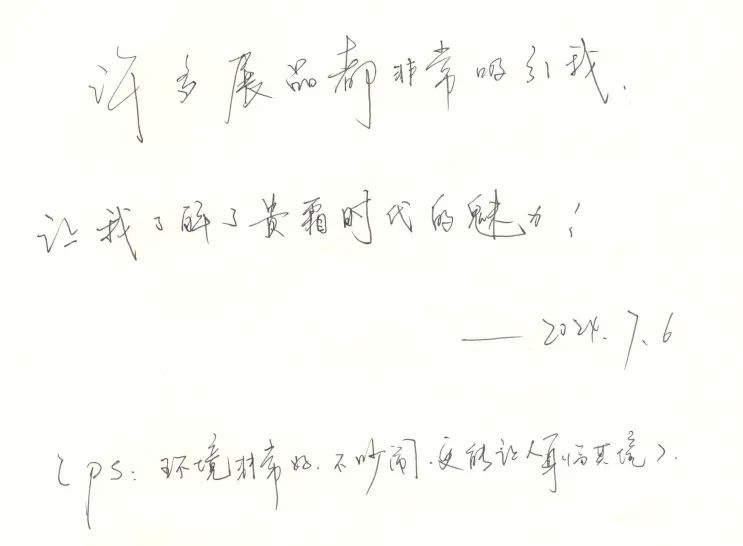 许多展品都非常吸引我.
让我了解了贵霜时代的魅力!
——2024.7.6
(PS: 环境非常好.不吵闹.更能让人身临其境).